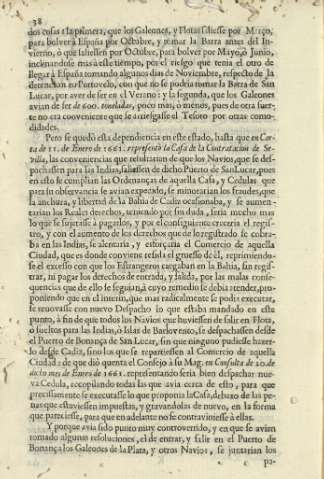 38
dos cosas : la primera, que los Galeones, y Flotas saliesse por Março,
para bolver à España por Octubre, y tomar la Barra antes del In-
vierno, ò que saliessen por Octubre, para bolver por Mayo, ò Junio,
inclinandose mas à este tiempo, por el riesgo que tenia el otro de
llegar à España tomando algunos dias de Noviembre, respecto de la
detencion en Portovelo, con que no se podria tomar la Barra de San
Lucar, por aver de ser en el Verano: y la segunda, que los Galeones
avian de ser de 600. toneladas, poco mas, ò menos, pues de otra suer-
te no era conveniente que se arriesgasse el Tesoro por otras como-
didades.
Pero se quedò esta dependencia en este estado, hasta que en Car-
ta de 11. de Enero de 1661. representò la Casa de la Contratacion de Se-
villa, las conveniencias que resultarian de que los Navios, que se des-
pachassen para las Indias, saliessen de dicho Puerto de San Lucar, pues
en esto se cumplian las Ordenanças de aquella Casa, y Cedulas que
para su observancia se avian expedido, se minorarian los fraudes, que
la anchura, y libertad de la Bahia de Cadiz ocasionaba, y se aumen-
tarian los Reales derechos, teniendo por sin duda, seria mucho mas
lo que se sujetasse à pagarlos, y por el consiguiente creceria el regis-
tro, y con el aumento de los derechos que de lo registrado se cobra-
ba en las Indias, se alentaria, y esforçaria el Comercio de aquella
Ciudad, que es donde conviene resida el gruesso de èl, reprimiendo-
se el excesso con que los Estrangeros cargaban en la Bahia, sin regis-
trar, ni pagar los derechos de entrada, y salida, por las malas conse-
quencias que de ello se seguian, à cuyo remedio se debia atender, pro-
poniendo que en el interin, que mas radicalmente se podia executar,
se renovasse con nuevo Despacho lo que estaba mandado en esta
punto, à fin de que todos los Navios que huviessen de salir en Flota,
ò sueltos para las Indias, ò Islas de Barlovento, se despachassen desde
el Puerto de Bonança de San Lucar, sin que ninguno pudiesse hazer-
lo desde Cadiz, sino los que se repartiessen al Comercio de aquella
Ciudad: de que diò quenta el Consejo à su Mag. en Consulta de 20. de
dicho mes de Enero de 1661. representando seria bien despachar nue-
va Cedula, recopilando todas las que avia cerca de esto, para que
precissamente se executasse lo que proponia la Casa, debaxo de las pe-
nas que estuviessen impuestas, y gravandolas de nuevo, en la forma
que pareciesse, para que en adelante no se contraviniesse à ellas.
Y porque avia sido punto muy controvertido, y en que se avian
tomado algunas resoluciones, el de entrar, y salir en el Puerto de
Bonança los Galeones de la Plata, y otros Navios, se juntarian los
pa-